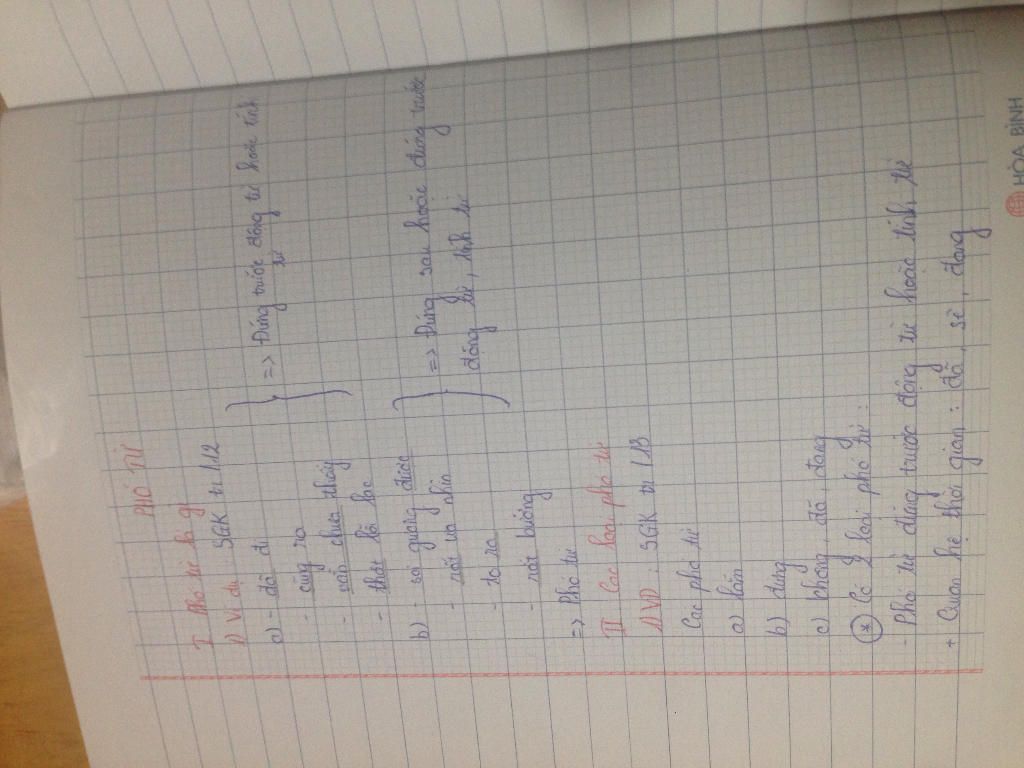 PHÓ TỪ
I Phó từ là gì
1) Ví dụ : SGK tr 1.12
a) - đã đi } => Đứng trước động từ hoặc tính từ
- cũng ra
- vẫn chưa thấy
- thật lỗi lạc
b) - soi gương được } => Đứng sau hoặc đứng trước động từ, tính từ
- rất ưa nhìn
- to ra
- rất bướng
=> Phó từ
II Các loại phó từ
1) VD : SGK tr 1.13
Các phó từ
a) lắm
b) đừng
c) không, đã, đang
* Có 2 loại phó từ :
- Phó từ đứng trước động từ hoặc tính từ
+ Quan hệ thời gian : đã, sẽ, đang
HÒA BÌNH